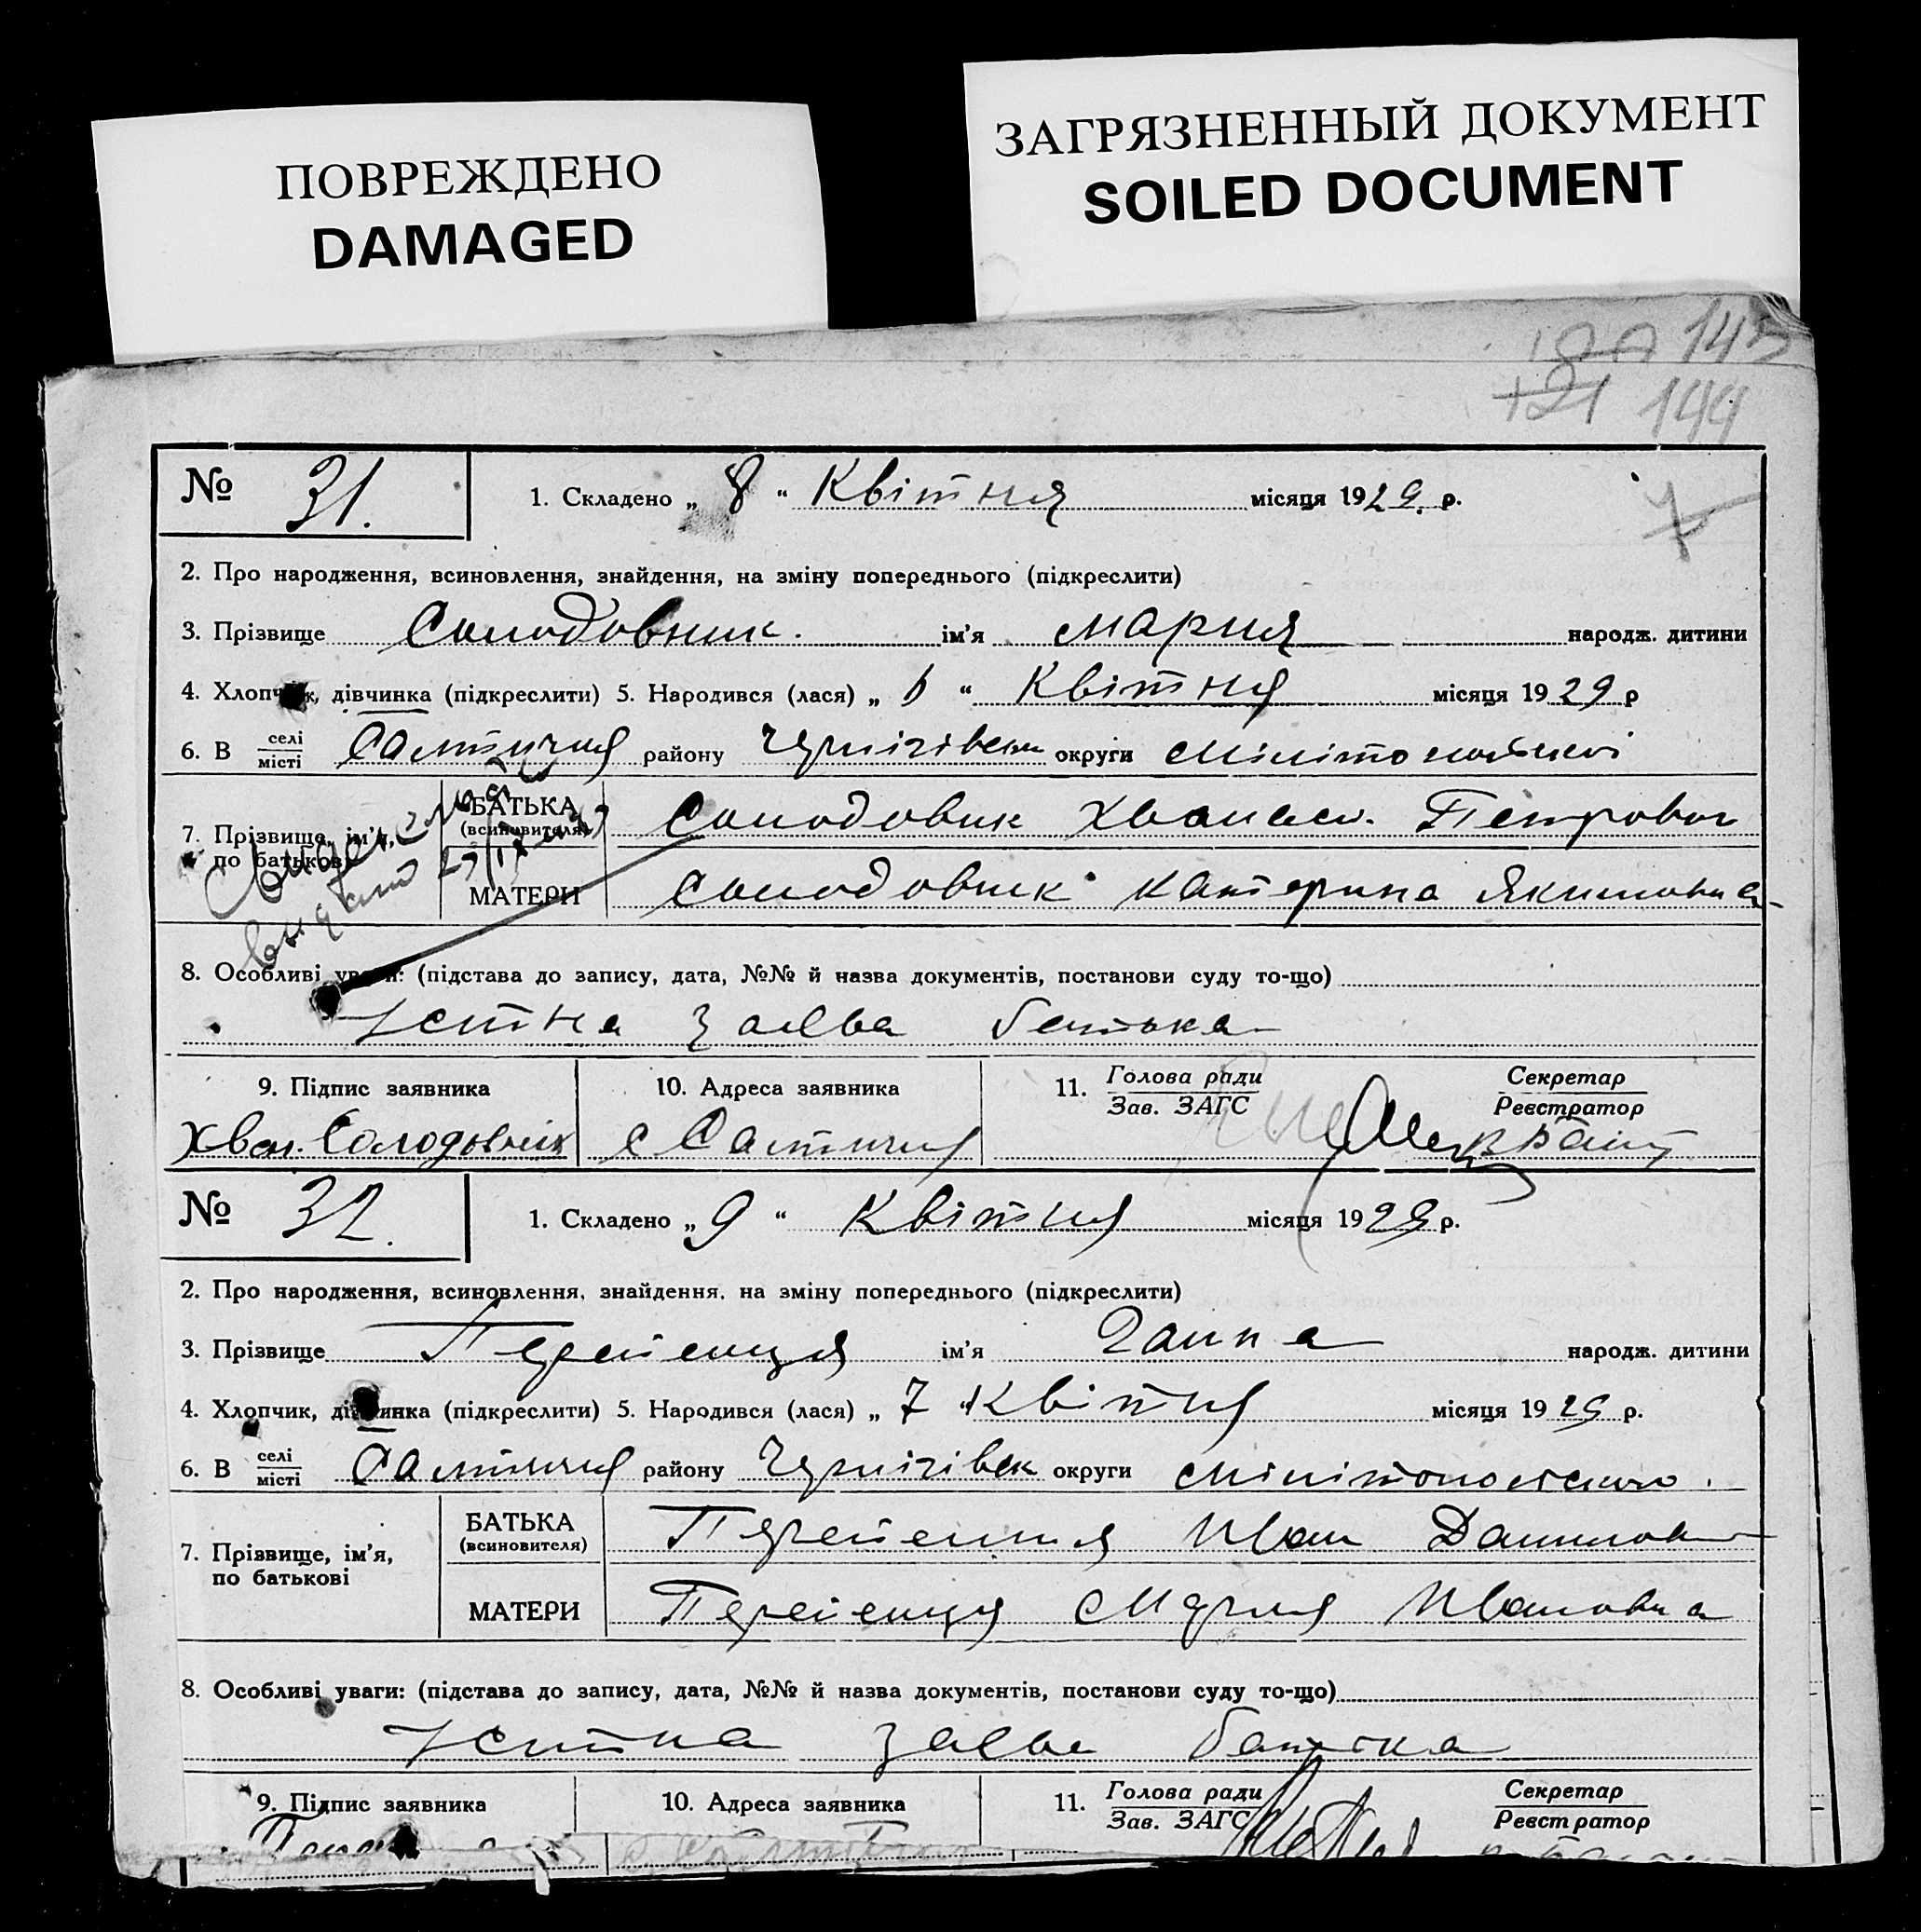 ПОВРЕЖДЕНО
DAMAGED
ЗАГРЯЗНЕННЫЙ ДОКУМЕНТ
SOILED DOCUMENT
143
121 144
№ 31. 1. Складено „ 8 “ Квітня місяця 1929. р.
2. Про народження, всиновлення, знайдення, на зміну попереднього (підкреслити)
3. Прізвище Солодовник. ім’я Мария народж. дитини
4. Хлопчик, дівчинка (підкреслити) 5. Народився (лася) „ 6 “ Квітня місяця 1929 р
6. В селі місті Салтичия району Чернігівськ округи Мілітопольскоі
7. Прізвище, ім’я, по батькові
БАТЬКА (всиновителя) Солодовник Хванасі. Петрович
МАТЕРИ Солодовник Катерина Якимовна
8. Особливі уваги: (підстава до запису, дата, №№ й назва документів, постанови суду то-що)
Устна заява батька
9. Підпис заявника 10. Адреса заявника 11. Голова ради Зав. ЗАГС Секретар Реєстратор
Хван. Солодовнік с Салтичия
№ 32. 1. Складено „ 9 “ Квітня місяця 1929 р.
2. Про народження, всиновлення, знайдення, на зміну попереднього (підкреслити)
3. Прізвище ім’я Ганна народж. дитини
4. Хлопчик, дівчинка (підкреслити) 5. Народився (лася) „ 7 “ Квітня місяця 1929 р.
6. В селі місті Салтичия району Чернігівськ округи Мілітопольского.
7. Прізвище, ім’я, по батькові
БАТЬКА (всиновителя) Иван Данилович
МАТЕРИ Мария Ивановна
8. Особливі уваги: (підстава до запису, дата, №№ й назва документів, постанови суду то-що)
Устна заява батька
9. Підпис заявника 10. Адреса заявника 11. Голова ради Зав. ЗАГС Секретар Реєстратор